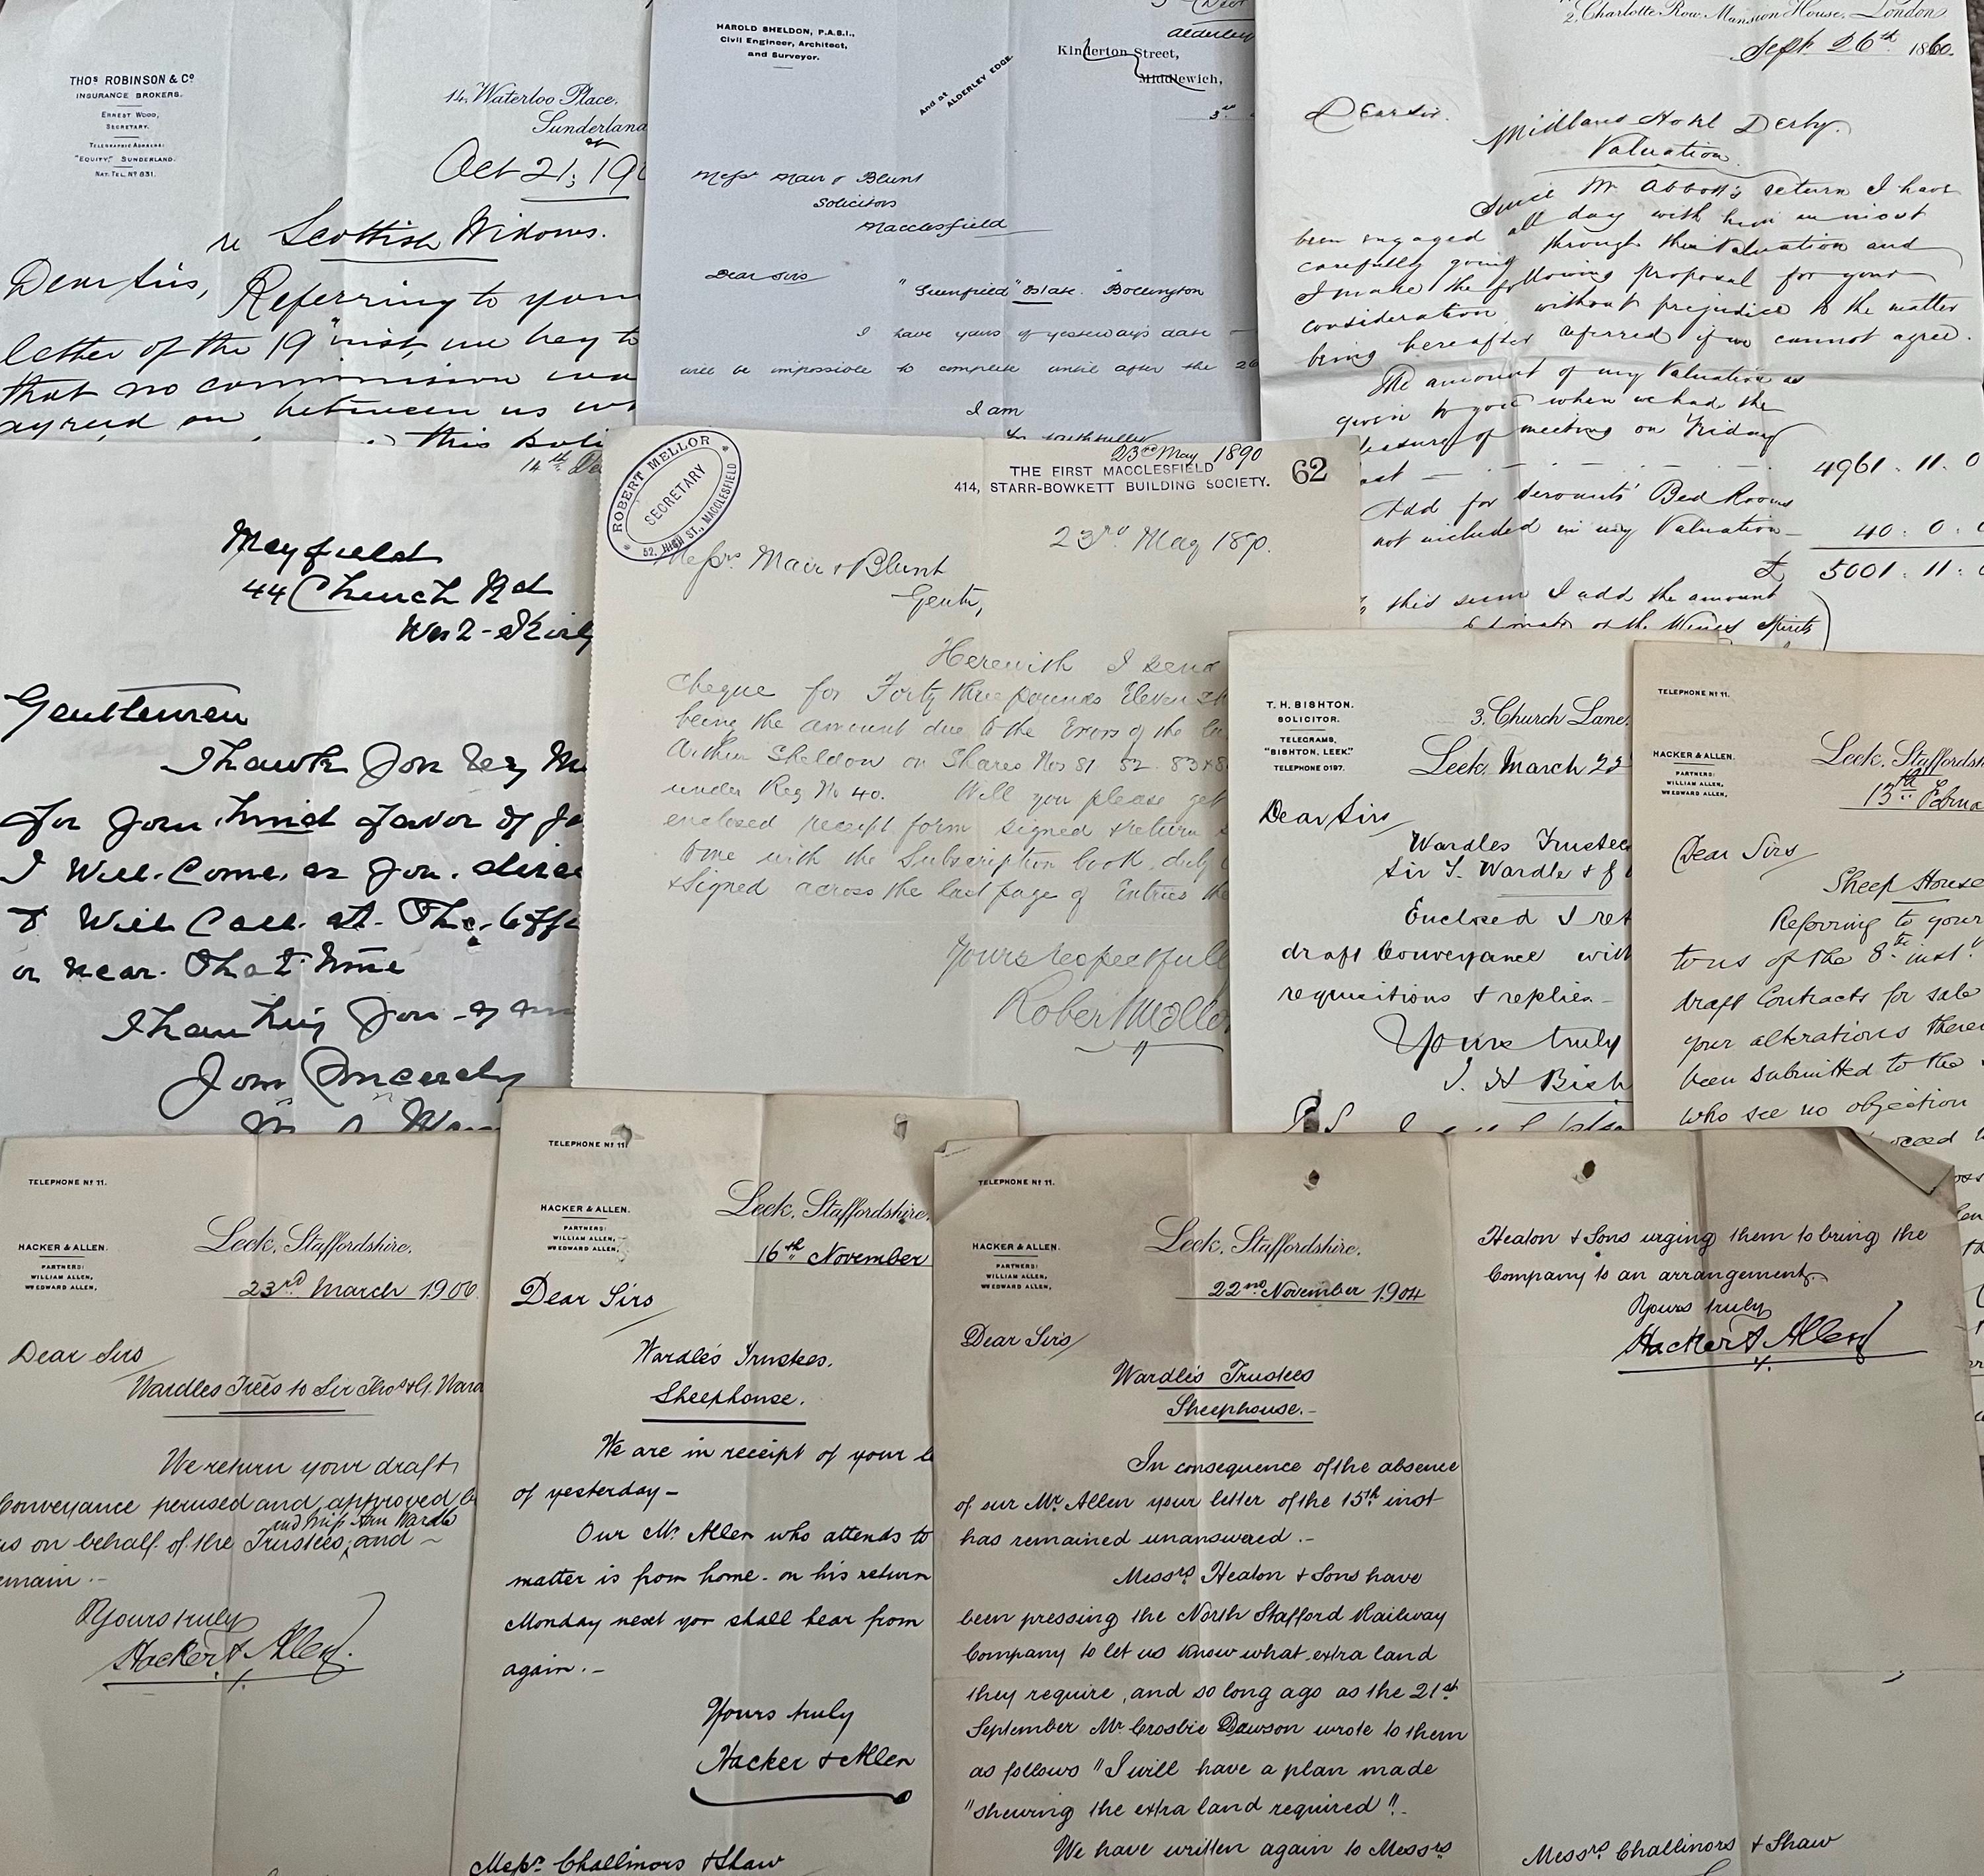 THOS ROBINSON & CO
INSURANCE BROKERS.
ERNEST WOOD,
SECRETARY.
TELEGRAPHIC ADDRESS:
"EQUITY," SUNDERLAND.
NAT. TEL. No 831.
14, Waterloo Place,
Sunderland
Oct 21, 190
re Scottish Widows.
Dear Sirs,
Referring to your
letter of the 19th inst, we beg to
that no commission was
agreed on between us
this
HAROLD SHELDON, P.A.S.I.,
Civil Engineer, Architect,
and Surveyor.
And at ALDERLEY EDGE.
Alderley
Kinderton Street,
Middlewich,
3rd
Messrs Mair & Blunt
Solicitors
Macclesfield
Dear Sirs
"Greenfield" Estate. Bollington
I have yours of yesterday's date
will be impossible to complete until after the 26
I am
Yrs faithfully
2, Charlotte Row, Mansion House, London
Sept 26th 1860.
Dear Sir.
Midland Hotel Derby.
Valuation.
Since Mr Abbott's return I have
been engaged all day with him in most
carefully going through the Valuation and
I make the following proposal for your
consideration, without prejudice to the matter
being hereafter referred if we cannot agree.
The amount of my Valuation as
given to you when we had the
pleasure of meeting on Friday
last — 4961 . 11 . 0
Add for Servants' Bed Rooms
not included in my Valuation — 40 . 0 . 0
£ 5001 . 11 :
this sum I add the amount
of the Wines Spirits
14th
Mayfield
44 Church Rd
West-Kirby
Gentlemen
Thank you very
for your kind favor of
I Will. Come, as you. direct
& Will Call. at. The. Office
or near. That time
Thanking you
Your Sincerely
ROBERT MELLOR
SECRETARY
52, HIGH ST, MACCLESFIELD
23rd May 1890
THE FIRST MACCLESFIELD
414, STARR-BOWKETT BUILDING SOCIETY.
62
23rd May 1890.
Messrs Mair & Blunt
Gentn,
Herewith I send
cheque for Forty three pounds Eleven
being the amount due to the Exors of the
Arthur Sheldon on Shares Nos 81 82 . 83 &
under Reg No 40. Will you please get
enclosed receipt form signed & return
to me with the Subscription book duly
& Signed across the last page of Entries
Yours respectfully
Robert Mellor
T. H. BISHTON.
SOLICITOR.
TELEGRAMS,
"BISHTON, LEEK."
TELEPHONE 0197.
3, Church Lane,
Leek, March 22
Dear Sirs
Wardles Trustees
Sir T. Wardle &
Enclosed I ret
draft Conveyance with
requisitions & replies—
Yours truly
T. H Bish
P.S.
TELEPHONE No 11.
HACKER & ALLEN.
PARTNERS:
WILLIAM ALLEN,
WM EDWARD ALLEN.
Leek, Staffordsh
13th Februa
Dear Sirs
Sheep House
Referring to your
of the 8th inst.
draft Contracts for sale
your alterations
been submitted to the
who see no objection
TELEPHONE No 11.
HACKER & ALLEN.
PARTNERS:
WILLIAM ALLEN,
WM EDWARD ALLEN.
Leek, Staffordshire,
23rd March 1900.
Dear Sirs
Wardles Trees to Sir Thos & G. Ward
We return your draft
Conveyance perused and approved by
and Miss Ann Wardle
us on behalf of the Trustees, and ~
remain.—
Yours truly
Hacker & Allen.
TELEPHONE No 11.
HACKER & ALLEN.
PARTNERS:
WILLIAM ALLEN,
WM EDWARD ALLEN.
Leek, Staffordshire,
16th November
Dear Sirs
Wardle's Trustees.
Sheephouse.
We are in receipt of your
of yesterday—
Our Mr Allen who attends to
matter is from home. on his return
Monday next you shall hear from
again.—
Yours truly
Hacker & Allen
Messrs Challinors & Shaw
TELEPHONE No 11.
HACKER & ALLEN.
PARTNERS:
WILLIAM ALLEN,
WM EDWARD ALLEN.
Leek, Staffordshire,
22nd November 1904
Dear Sirs
Wardle's Trustees
Sheephouse.—
In consequence of the absence
of our Mr Allen your letter of the 15th inst
has remained unanswered.—
Messrs Heaton & Sons have
been pressing the North Stafford Railway
Company to let us know what extra land
they require, and so long ago as the 21st
September Mr Crosbie Dawson wrote to them
as follows "I will have a plan made
"shewing the extra land required".—
We have written again to Messrs
Heaton & Sons urging them to bring the
Company to an arrangement.
Yours truly
Hacker & Allen
Messrs Challinors & Shaw